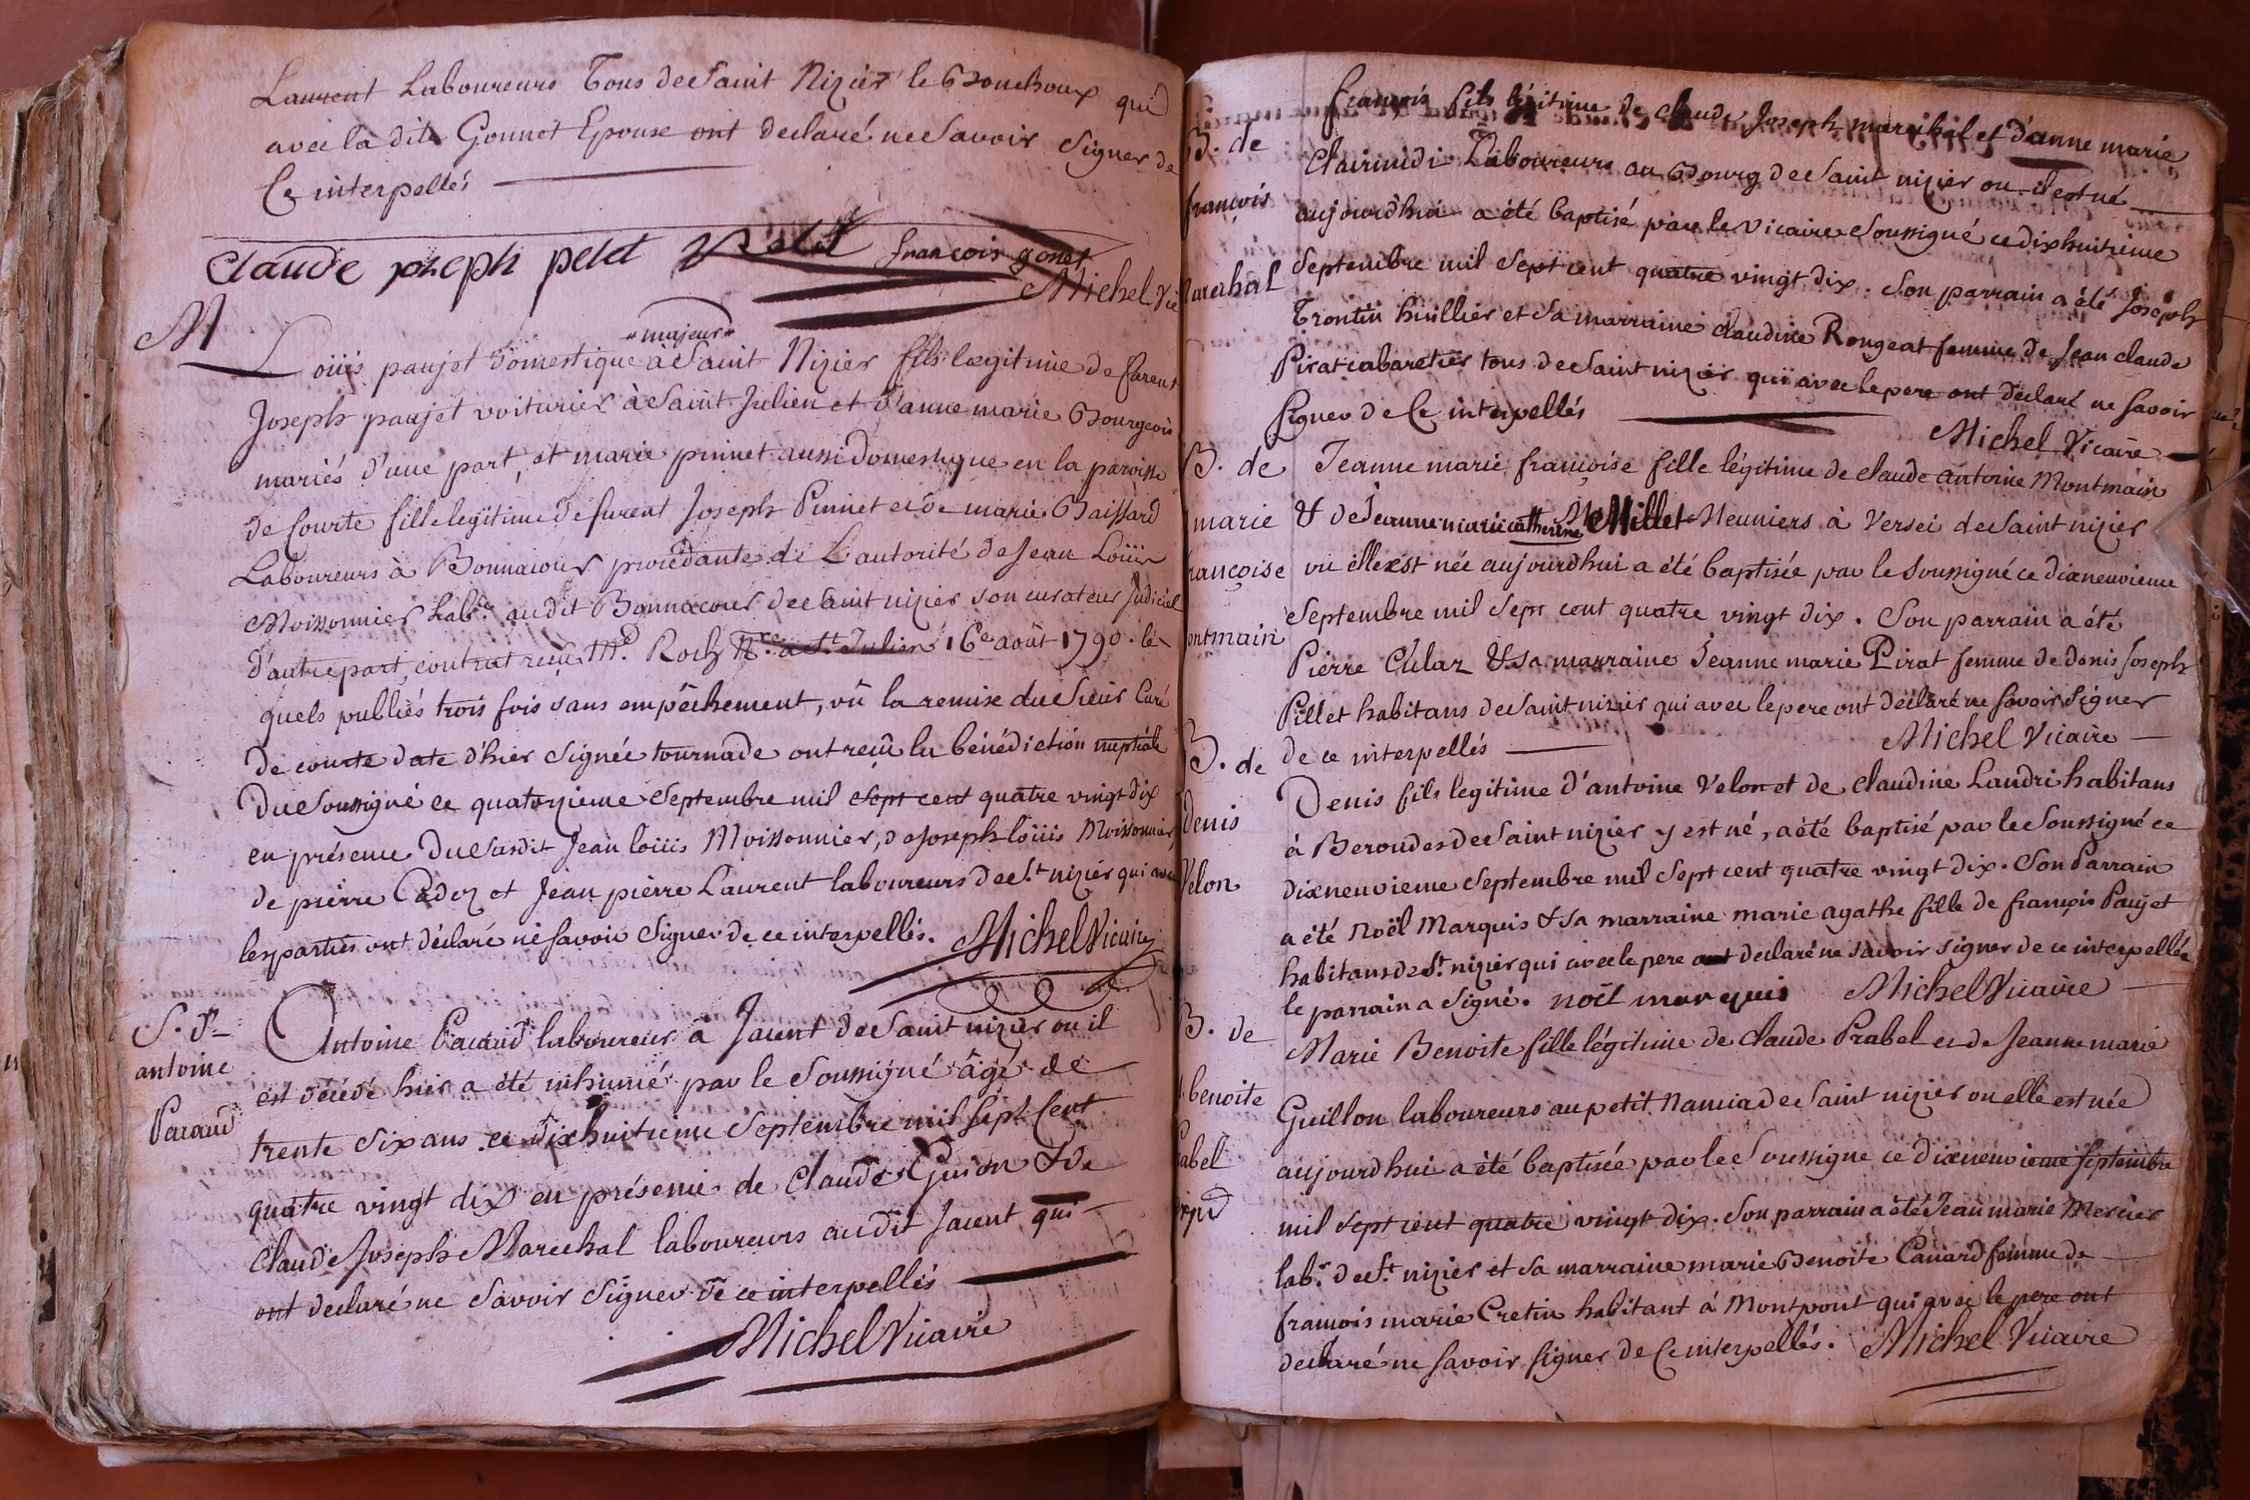 Laurent Laboureurs Tous de Saint Nizier le Bouchoux qui
avec la dite Gonnet Epouse ont declaré ne Savoir Signer de
Ce interpellés
Claude joseph petit Petit françois gonet
Michel Vic
M
"majeur"
Loüis paujet Domestique à Saint Nizier fils legitime de farent
Joseph paujet voiturier à Saint Julien et d'anne marie Bourgeois
mariés d'une part, et marie pinnet aussi Domestique en la paroisse
de Courte fille legitime defurent Joseph Pinnet et de marie Baissard
Laboureurs à Bonnacour procédante de L'autorité de Jean Loüis
Moissonnier hab. audit Bonnacour de Saint nizier son curateur Judiciel
d'autre part, contrat reçu Me. Roch Nre. a St. Julien 16e août 1790. les
quels publiés trois fois sans empêchement, vû la remise du Sieur Curé
de courte date d'hier Signée tournade ont reçu la bénédiction nuptiale
du Soussigné ce quatorzieme Septembre mil Sept cent quatre vingt dix
en présence du Susdit Jean loüis Moissonnier, de Joseph loüis Moissonnier,
de pierre Cadoz et Jean pierre Laurent laboureurs de St nizier qui avec
les parties ont déclaré ne Savoir Signer de ce interpellés. Michel Vicaire
S. d'
antoine
Pacaud
Antoine Pacaud laboureur à Jacent de Saint nizier ou il
est décédé hier a été inhumé par le Soussigné âgé de
trente Six ans ce dixhuitieme Septembre mil Sept Cent
quatre vingt dix en présence de Claude Guion & de
Claude Joseph Marechal laboureurs audit Jacent qui
ont declaré ne Savoir Signer de ce interpellés
Michel Vicaire
B. de
françois
Marechal
françois fils légitime de Claude Joseph marechal et d'anne marie
Clairmidi Laboureurs au Bourg de Saint nizier ou il est né
aujourd'hui a été baptisé par le Vicaire Soussigné ce dixhuitieme
Septembre mil Sept cent quatre vingt dix. Son parrain a été Joseph
Trontin huillier et Sa marraine claudine Rongeat femme de Jean claude
Pirat cabaretier tous de Saint nizier qui avec le pere ont déclaré ne Savoir
Signer de Ce interpellés
Michel Vicaire
B. de
marie
françoise
ontmain
Jeanne marie françoise fille légitime de claude antoine Montmain
& de Jeanne marie catherine Millet Meuniers à Versei de Saint nizier
où elle est née aujourdhui a été baptisée par le Soussigné ce dixneuvieme
Septembre mil Sept cent quatre vingt dix. Son parrain a été
Pierre Clulaz & Sa marraine Jeanne marie Pirat femme de denis Joseph
Pillet habitans de Saint nizier qui avec le pere ont déclaré ne Savoir Signer
de ce interpellés
Michel Vicaire
B. de
Denis
Velon
Denis fils legitime d'antoine Velon et de claudine Landri habitans
à Beroudes de Saint nizier y est né, a été baptisé par le Soussigné ce
dixneuvieme Septembre mil Sept cent quatre vingt dix. Son Parrain
a été Noël Marquis & Sa marraine marie agathe fille de françois Paujet
habitans de St. nizier qui avec le pere ont declaré ne Savoir Signer de ce interpellés
le parrain a Signé. noël marquis Michel Vicaire
B. de
benoite
rabel
Marie Benoite fille légitime de Claude Prabel et de Jeanne marie
Guillon laboureurs au petit Nancia de Saint nizier ou elle est née
aujourdhui a été baptisée par le Soussigné ce dixneuvieme Septembre
mil Sept cent quatre vingt dix. Son parrain a été Jean marie Mercier
labr. de St. nizier et Sa marraine marie Benoite Canard femme de
francois marie Cretin habitant à Montpont qui avec le pere ont
declaré ne Savoir Signer de Ce interpellés. Michel Vicaire